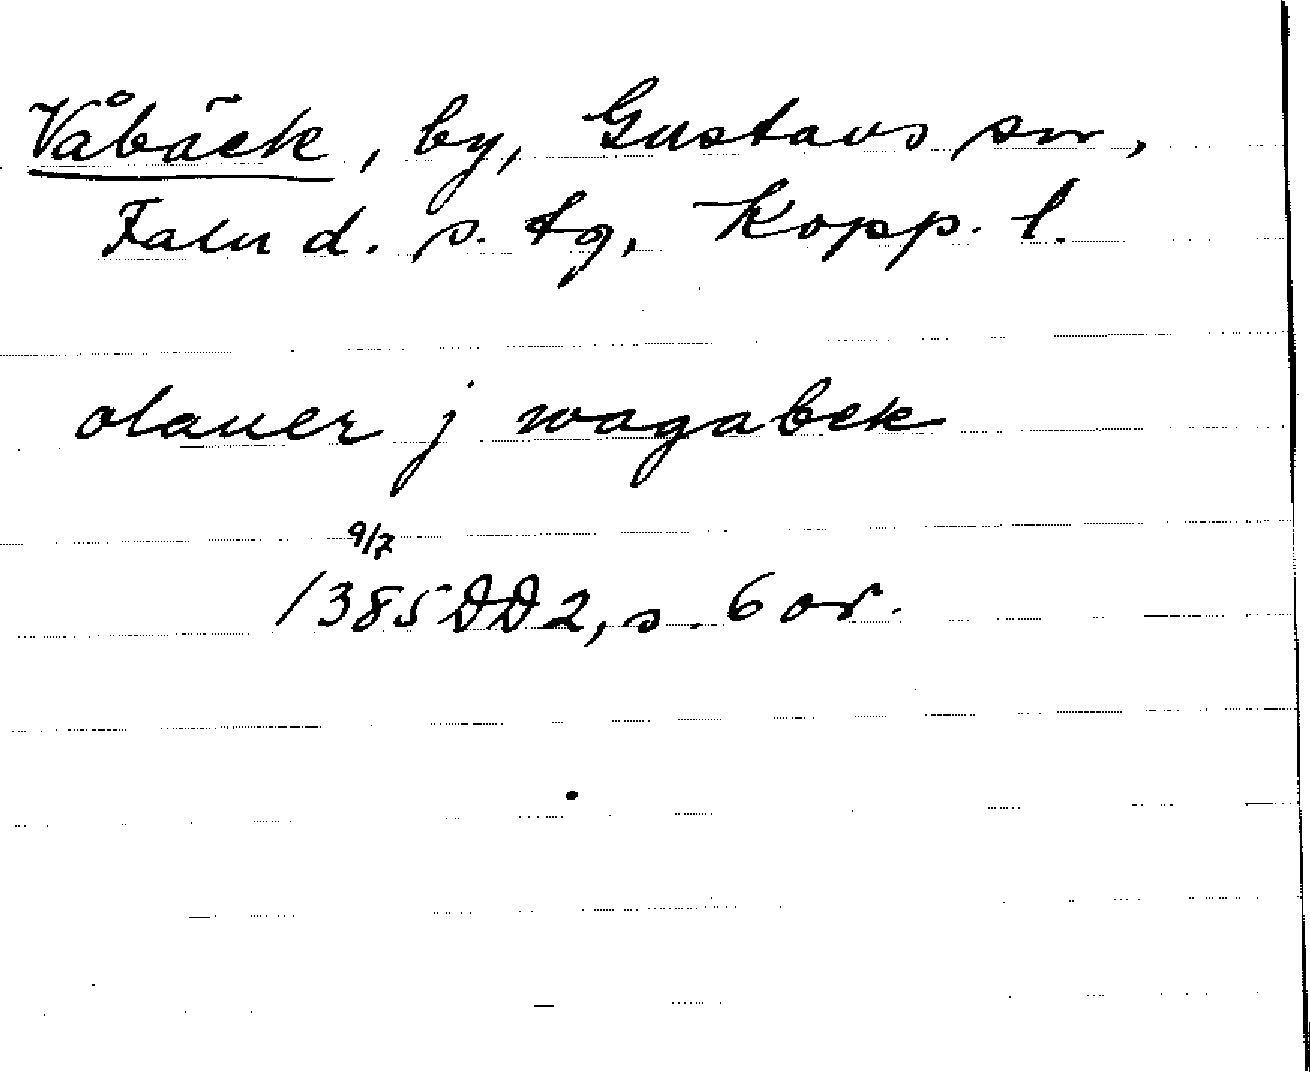 Våbäck, by, Gustavs sn,
Falu d. s. tg, Kopp. l.
olauer j wagabek
9/7
1385 DD2, s. 6 or.